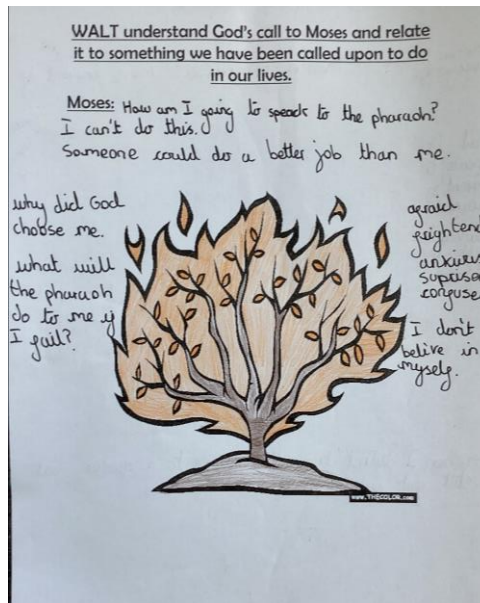 WALT understand God's call to Moses and relate
it to something we have been called upon to do
in our lives.
Moses: How am I going to speack to the pharaoh?
I can't do this.
Someone could do a better job than me.
why did God
choose me.
what will
the pharaoh
do to me if
I fail?
afraid
frightend
ankiurs
suprise
confuse
I don't
belive in
myself.
www.THECOLOR.com